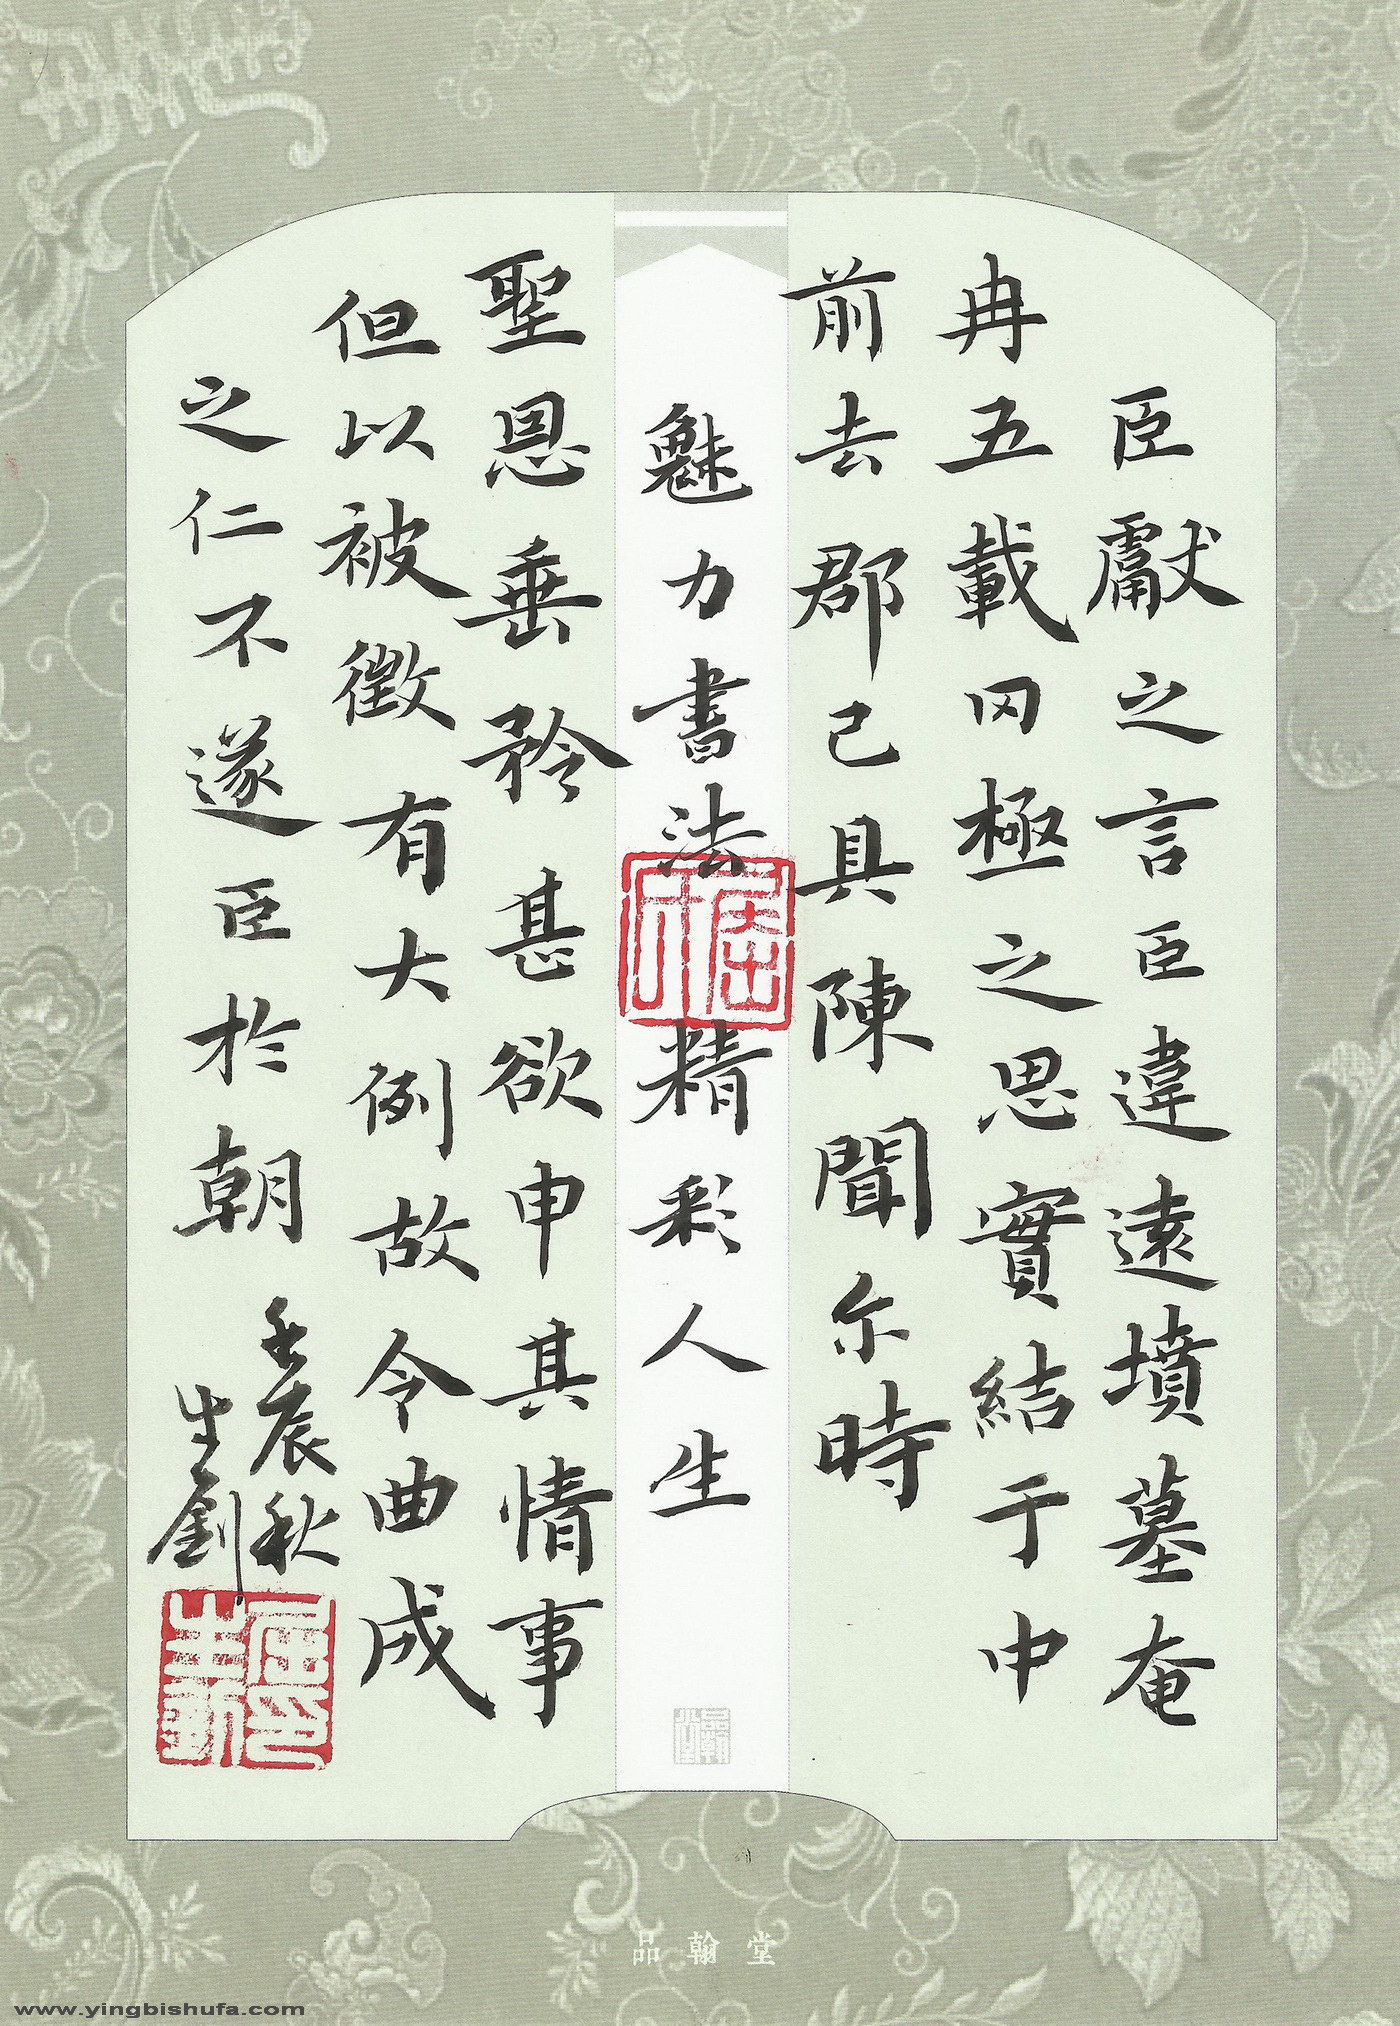 臣獻之言臣違遠墳墓奄
冉五載罔極之思實結于中
前去郡已具陳聞尔時
魅力書法精彩人生
聖恩垂矜甚欲申其情事
但以被徵有大例故令曲成
之仁不遂臣於朝
壬辰秋
生劉
品翰堂
www.yingbishufa.com